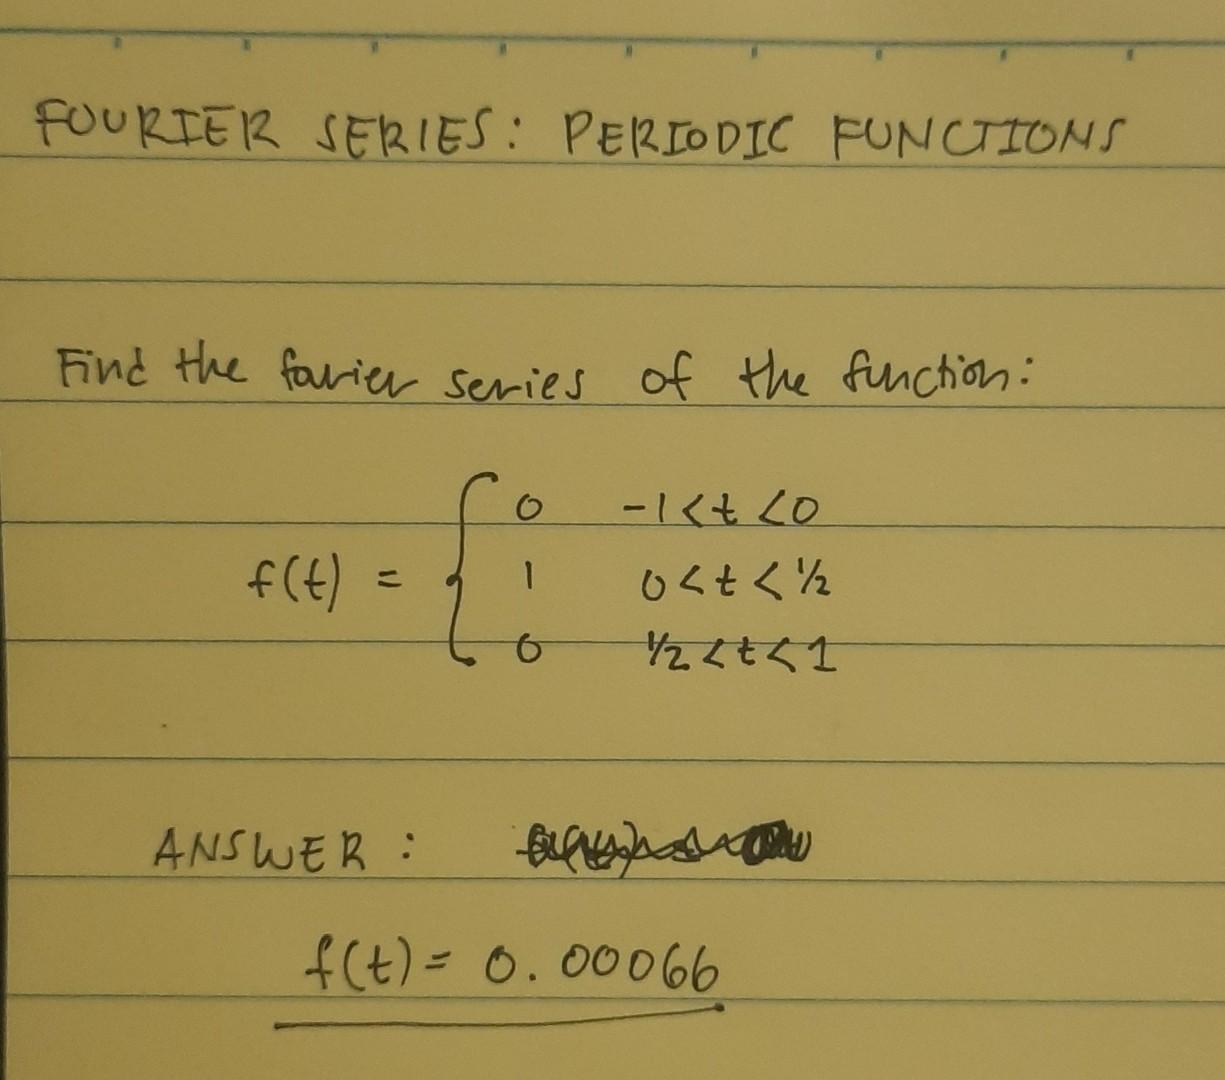 FOURIER SERIES: PERIODIC FUNCTIONS
Find the fourier series of the function:
0 -1<t<0
f(t) = { 1 0<t<½
0 ½<t<1
ANSWER:
f(t)= 0.00066